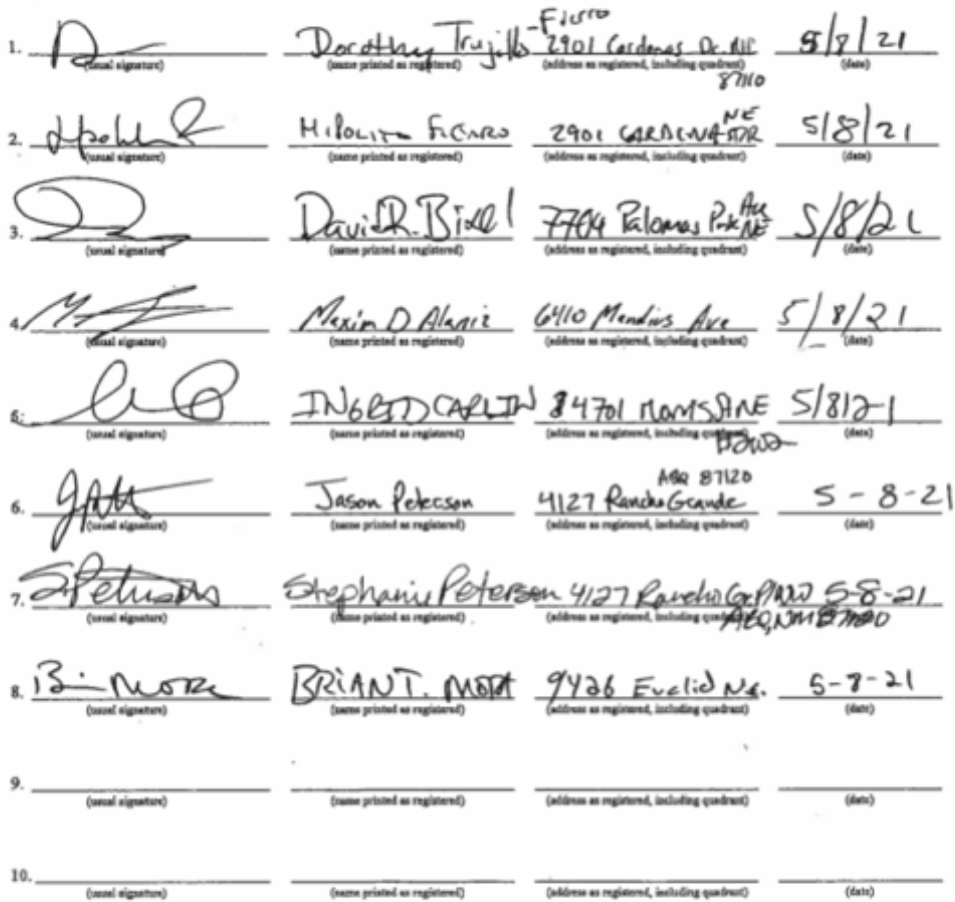 -Fierro
1. Dorothy Trujillo 2901 Cardenas Dr. NE 5/8/21
(usual signature) (name printed as registered) (address as registered, including quadrant) (date)
87110
NE
2. HIPOLITO FIERRO 2901 CARDENAS DR 5/8/21
(usual signature) (name printed as registered) (address as registered, including quadrant) (date)
Ave
3. David R. 7704 Palomas Park NE 5/8/21
(usual signature) (name printed as registered) (address as registered, including quadrant) (date)
4. Maxim D Alaniz 6410 Mendius Ave 5/8/21
(usual signature) (name printed as registered) (address as registered, including quadrant) (date)
5. INGRID CARLIN 4701 NE 5/8/21
(usual signature) (name printed as registered) (address as registered, including quadrant) (date)
ABQ 87120
6. Jason Peterson 4127 Rancho Grande 5-8-21
(usual signature) (name printed as registered) (address as registered, including quadrant) (date)
7. S. Peterson Stephanie Peterson 4127 Rancho Gr Pl NW 5-8-21
(usual signature) (name printed as registered) (address as registered, including quadrant) (date)
ABQ, NM 87120
8. BRIAN T. 9426 Euclid Ne. 5-8-21
(usual signature) (name printed as registered) (address as registered, including quadrant) (date)
9.
(usual signature) (name printed as registered) (address as registered, including quadrant) (date)
10.
(usual signature) (name printed as registered) (address as registered, including quadrant) (date)